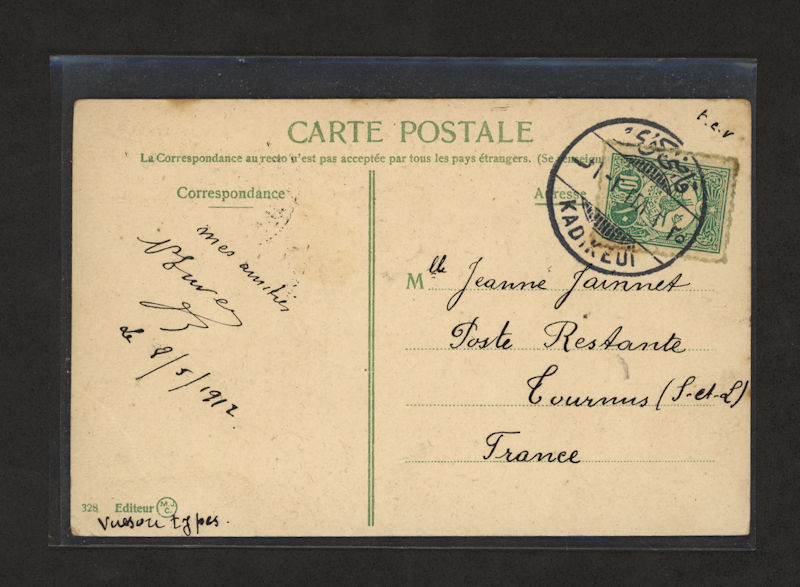 t.c.v
CARTE POSTALE
La Correspondance au recto n'est pas acceptée par tous les pays étrangers. (Se renseign
Correspondance
Adresse
KADIKEUI
10
mes amitiés
le 8/5/1912
Mlle Jeanne Jainnet
Poste Restante
Tournus (S-et-L)
France
328 Editeur MJC
Vues ou types.